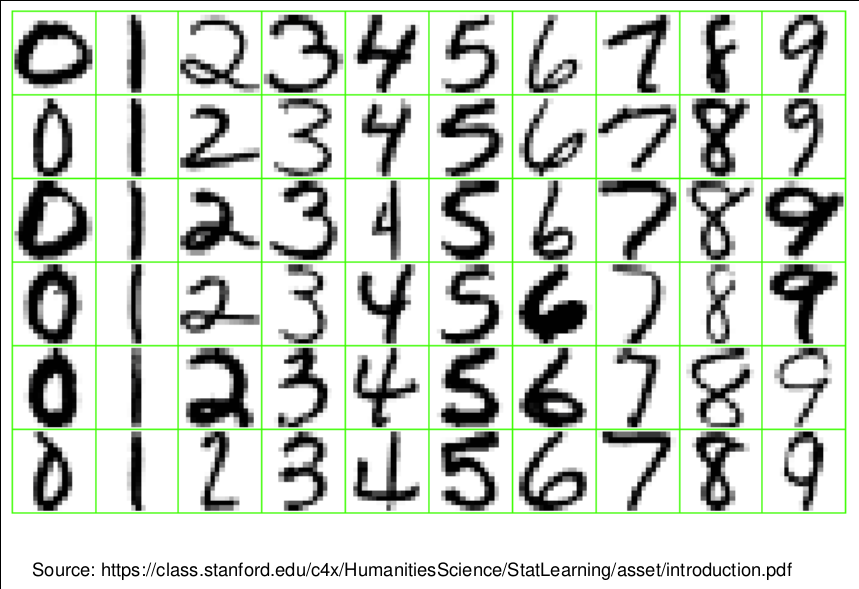 0 1 2 3 4 5 6 7 8 9
0 1 2 3 4 5 6 7 8 9
0 1 2 3 4 5 6 7 8 9
0 1 2 3 4 5 6 7 8 9
0 1 2 3 4 5 6 7 8 9
0 1 2 3 4 5 6 7 8 9
Source: https://class.stanford.edu/c4x/HumanitiesScience/StatLearning/asset/introduction.pdf